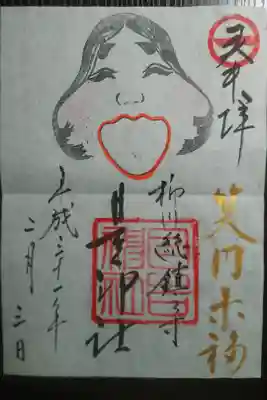 奉拝
笑門来福
柳川総鎮守
日吉神社
平成三十一年
二月 三日